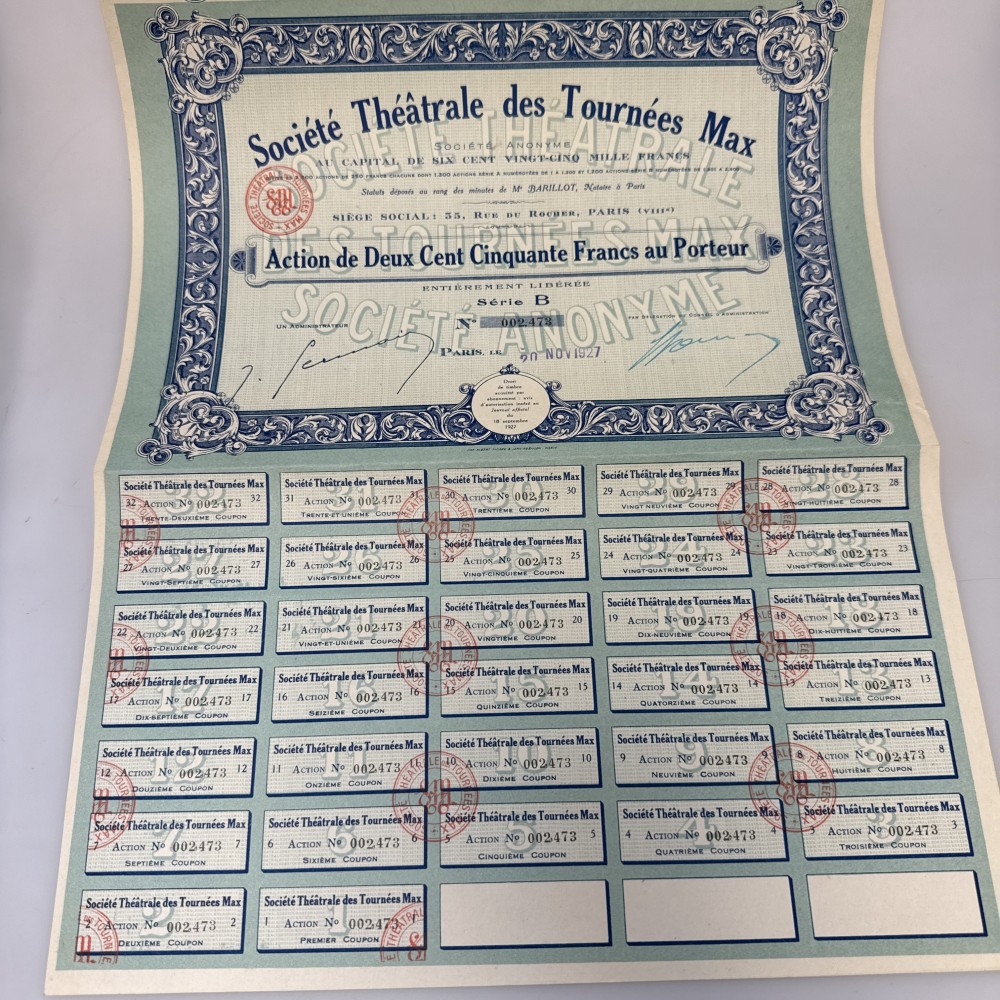 Société Théâtrale des Tournées Max
SOCIÉTÉ ANONYME
AU CAPITAL DE SIX CENT VINGT-CINQ MILLE FRANCS
Statuts déposés au rang des minutes de Me BARILLOT, Notaire à Paris
SIÈGE SOCIAL: 35, RUE DU ROCHER, PARIS (VIIIe)
Action de Deux Cent Cinquante Francs au Porteur
ENTIÈREMENT LIBÉRÉE
Série B
UN ADMINISTRATEUR
No 002.473
PAR DÉLÉGATION DU CONSEIL D'ADMINISTRATION
PARIS, LE 20 NOV 1927
Droit
de timbre
acquitté par
abonnement : avis
d'autorisation inséré au
Journal officiel
du
18 septembre
1927
SOCIÉTÉ THÉATRALE
DES TOURNÉES MAX
SOCIÉTÉ ANONYME
Société Théâtrale des Tournées Max Société Théâtrale des Tournées Max Société Théâtrale des Tournées Max Société Théâtrale des Tournées Max Société Théâtrale des Tournées Max
32 ACTION No 002.473 32 31 ACTION No 002.473 31 30 ACTION No 002.473 30 29 ACTION No 002.473 29 28 ACTION No 002.473 28
TRENTE-DEUXIÈME COUPON TRENTE-ET-UNIÈME COUPON TRENTIÈME COUPON VINGT NEUVIÈME COUPON VINGT-HUITIÈME COUPON
Société Théâtrale des Tournées Max Société Théâtrale des Tournées Max Société Théâtrale des Tournées Max Société Théâtrale des Tournées Max Société Théâtrale des Tournées Max
27 ACTION No 002.473 27 26 ACTION No 002.473 26 25 ACTION No 002.473 25 24 ACTION No 002.473 24 23 ACTION No 002.473 23
VINGT-SEPTIÈME COUPON VINGT-SIXIÈME COUPON VINGT-CINQUIÈME COUPON VINGT-QUATRIÈME COUPON VINGT-TROISIÈME COUPON
Société Théâtrale des Tournées Max Société Théâtrale des Tournées Max Société Théâtrale des Tournées Max Société Théâtrale des Tournées Max Société Théâtrale des Tournées Max
22 ACTION No 002.473 22 21 ACTION No 002.473 21 20 ACTION No 002.473 20 19 ACTION No 002.473 19 18 ACTION No 002.473 18
VINGT-DEUXIÈME COUPON VINGT-ET-UNIÈME COUPON VINGTIÈME COUPON DIX-NEUVIÈME COUPON DIX-HUITIÈME COUPON
Société Théâtrale des Tournées Max Société Théâtrale des Tournées Max Société Théâtrale des Tournées Max Société Théâtrale des Tournées Max Société Théâtrale des Tournées Max
17 ACTION No 002.473 17 16 ACTION No 002.473 16 15 ACTION No 002.473 15 14 ACTION No 002.473 14 13 ACTION No 002.473 13
DIX-SEPTIÈME COUPON SEIZIÈME COUPON QUINZIÈME COUPON QUATORZIÈME COUPON TREIZIÈME COUPON
Société Théâtrale des Tournées Max Société Théâtrale des Tournées Max Société Théâtrale des Tournées Max Société Théâtrale des Tournées Max Société Théâtrale des Tournées Max
12 ACTION No 002.473 12 11 ACTION No 002.473 11 10 ACTION No 002.473 10 9 ACTION No 002.473 9 8 ACTION No 002.473 8
DOUZIÈME COUPON ONZIÈME COUPON DIXIÈME COUPON NEUVIÈME COUPON HUITIÈME COUPON
Société Théâtrale des Tournées Max Société Théâtrale des Tournées Max Société Théâtrale des Tournées Max Société Théâtrale des Tournées Max Société Théâtrale des Tournées Max
7 ACTION No 002.473 7 6 ACTION No 002.473 6 5 ACTION No 002.473 5 4 ACTION No 002.473 4 3 ACTION No 002.473 3
SEPTIÈME COUPON SIXIÈME COUPON CINQUIÈME COUPON QUATRIÈME COUPON TROISIÈME COUPON
Société Théâtrale des Tournées Max Société Théâtrale des Tournées Max
2 ACTION No 002.473 2 1 ACTION No 002.473 1
DEUXIÈME COUPON PREMIER COUPON